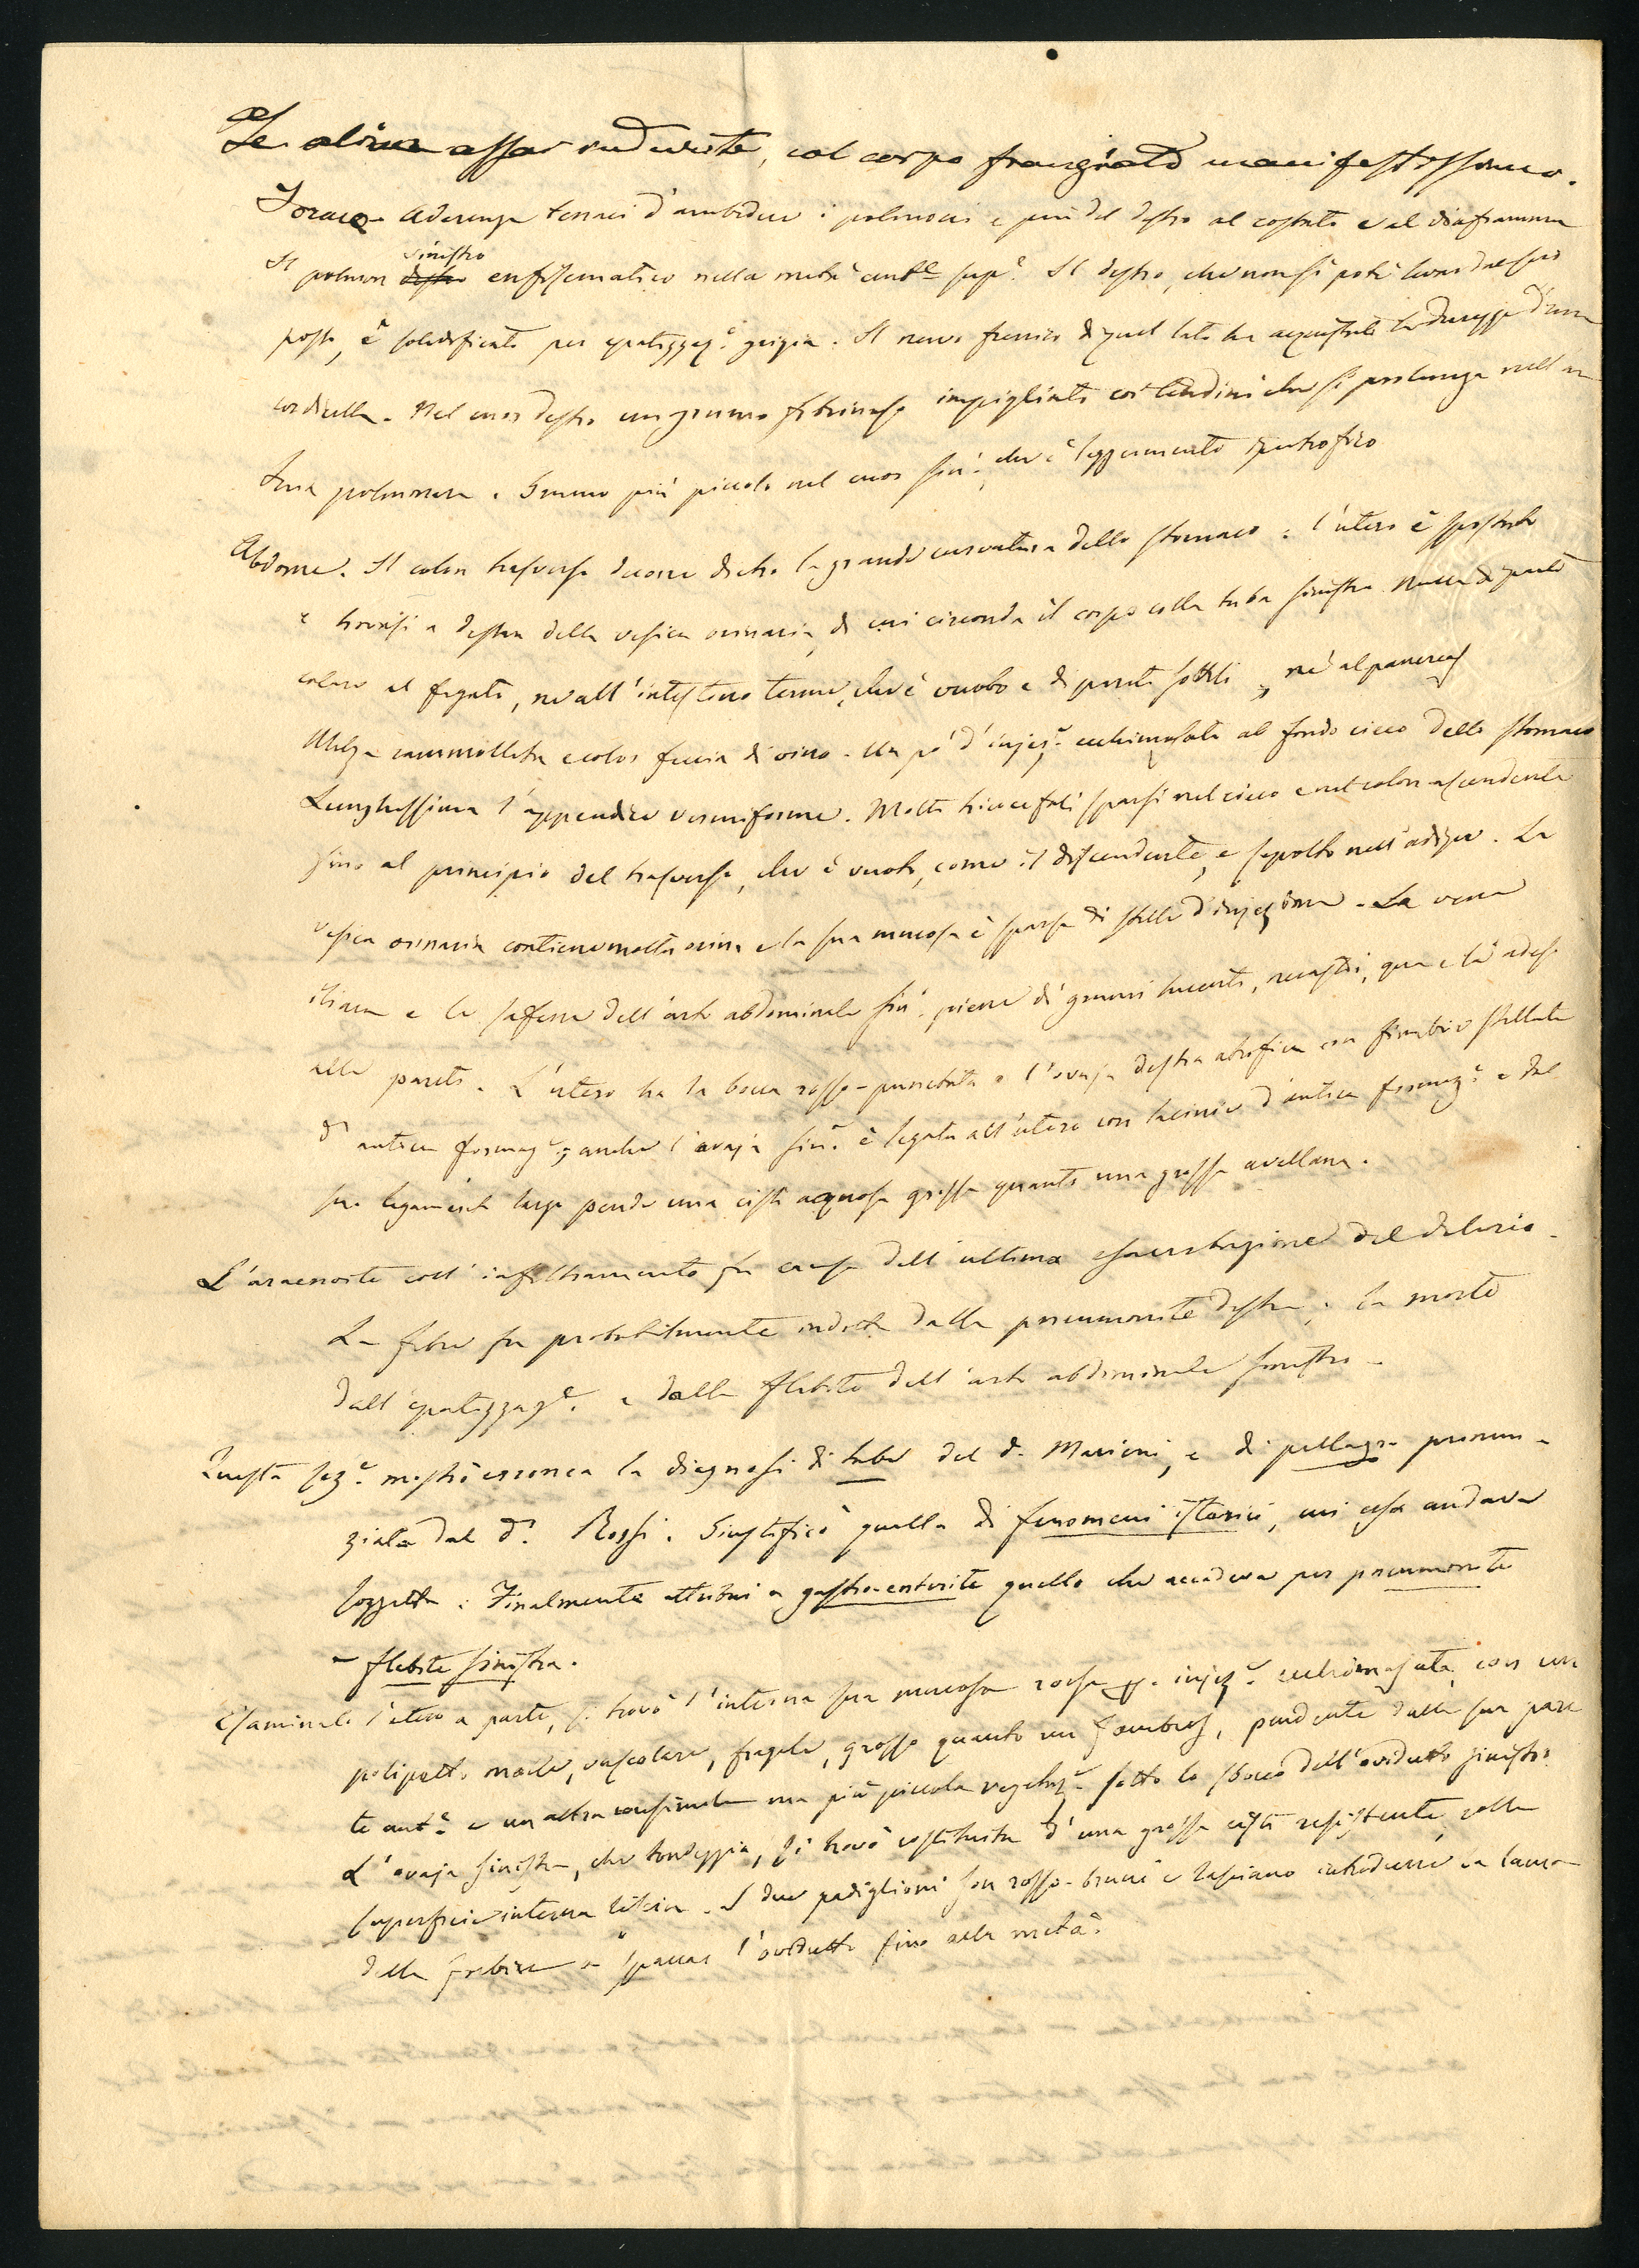 Le olive assai indurite, col corpo frangiato manifestissimo.
Torace. Aderenze tenaci d'ambedue i polmoni e più del destro al costato e al diaframma
Il polmon sinistro enfisematico nella metà ant.e sup.e Il destro, che non si poté levar dal suo
posto, è solidificato per epatizzaz.e grigia. Il nervo frenico di quel lato ha acquistato la durezza d'una
cordicella. Nel cuor destro un grumo fibrinoso impigliato coi tendini che si prolunga nell'ar
teria polmonare. Grumo più piccolo nel cuor sin.o, che è leggermente ipertrofico
Abdome. Il colon trasverso decorre dietro la grande curvatura dello stomaco: l'utero è spostato
e trovasi a destra della vesica orinaria, di cui circonda il corpo colla tuba sinistra. Nulla di parti
colare al fegato, né all'intestino tenue, che è vuoto e di pareti sottili, né al pancreas
Milza rammollita e color feccia di vino. Un po' d'injez.e ecchimosata al fondo cieco dello stomaco
Lunghissima l'appendice vermiforme. Molti tricocefali sparsi nel cieco e nel colon ascendente
fino al principio del trasverso, che è vuoto, come il discendente, e sepolto nell'adipe. La
vesica orinaria contiene molta orina e la sua mucosa è sparsa di stelle d'injezione. La vena
iliaca e la safena dell'arto abdominale sin.o piene di grumi nerastri, qua e là adesi
alle pareti. L'utero ha la bocca rosso-punctata e l'ovaja destra atrofica con fimbrie stellate
d'antica formaz.e; anche l'ovaja sin.a è legata all'utero con lacinie d'antica formaz.e e dal
suo legamento largo pende una cisti acquosa grossa quanto una grossa avellana.
L'aracnoite coll' fu causa dell'ultima esacerbazione del delirio.
La febre fu probabilmente indotta dalla pneumonite destra; la morte
dall'epatizzaz.e e dalla flebite dell'arto abdominale sinistro.
Questa sez.e mostrò erronea la diagnosi di tabe del d.r Mariani, e di pellagra pronun-
ziata dal d.r Rossi. Giustificò quella di fenomeni isterici, cui essa andava
soggetta. Finalmente attribuì a gastro-enterite quello che accadeva per pneumonite
e flebite sinistra.
Esaminato l'utero a parte, si trovò l'interna sua mucosa rossa p. injez.e ecchimosata, con un
polipetto molle, vascolare, fragile, grosso quanto un , pendente dalla sua pare
te ant.e e un altra consimile ma più piccola vegetaz.e sotto lo sbocco dell'ovidutto sinistro.
L'ovaja sinistra, che tondeggia, si trovò costituita d'una grossa cisti resistente, colla
superficie interna liscia. I due padiglioni son rosso-bruni e lasciano introdurre la lama
della forbice e spaccar l'ovidutto fino alla metà.